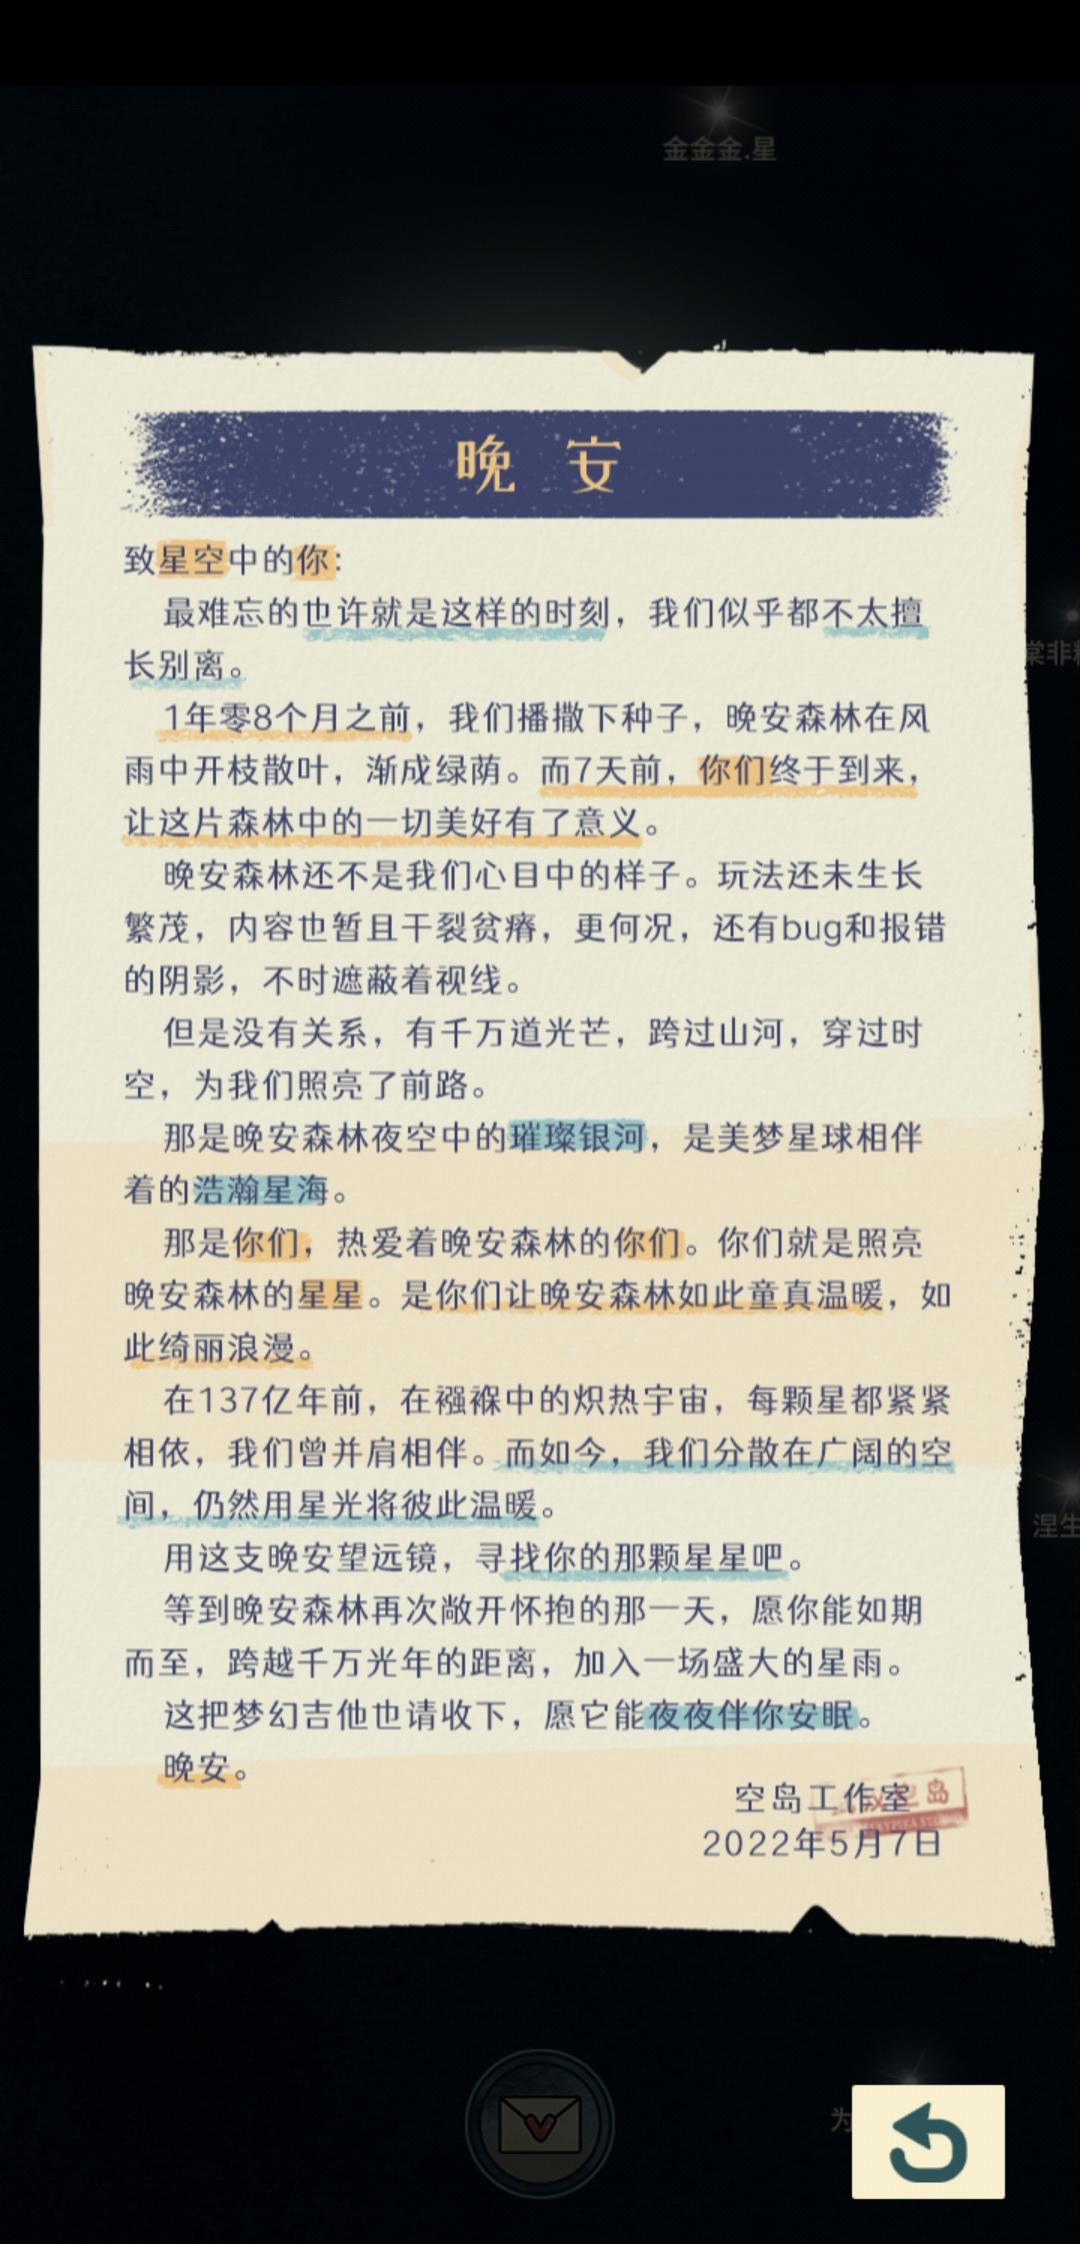 金金金.星
晚安
致星空中的你：
最难忘的也许就是这样的时刻，我们似乎都不太擅
长别离。
1年零8个月之前，我们播撒下种子，晚安森林在风
雨中开枝散叶，渐成绿荫。而7天前，你们终于到来，
让这片森林中的一切美好有了意义。
晚安森林还不是我们心目中的样子。玩法还未生长
繁茂，内容也暂且干裂贫瘠，更何况，还有bug和报错
的阴影，不时遮蔽着视线。
但是没有关系，有千万道光芒，跨过山河，穿过时
空，为我们照亮了前路。
那是晚安森林夜空中的璀璨银河，是美梦星球相伴
着的浩瀚星海。
那是你们，热爱着晚安森林的你们。你们就是照亮
晚安森林的星星。是你们让晚安森林如此童真温暖，如
此绮丽浪漫。
在137亿年前，在襁褓中的炽热宇宙，每颗星都紧紧
相依，我们曾并肩相伴。而如今，我们分散在广阔的空
间，仍然用星光将彼此温暖。
用这支晚安望远镜，寻找你的那颗星星吧。
等到晚安森林再次敞开怀抱的那一天，愿你能如期
而至，跨越千万光年的距离，加入一场盛大的星雨。
这把梦幻吉他也请收下，愿它能夜夜伴你安眠。
晚安。
空岛工作室
2022年5月7日
涅生
为